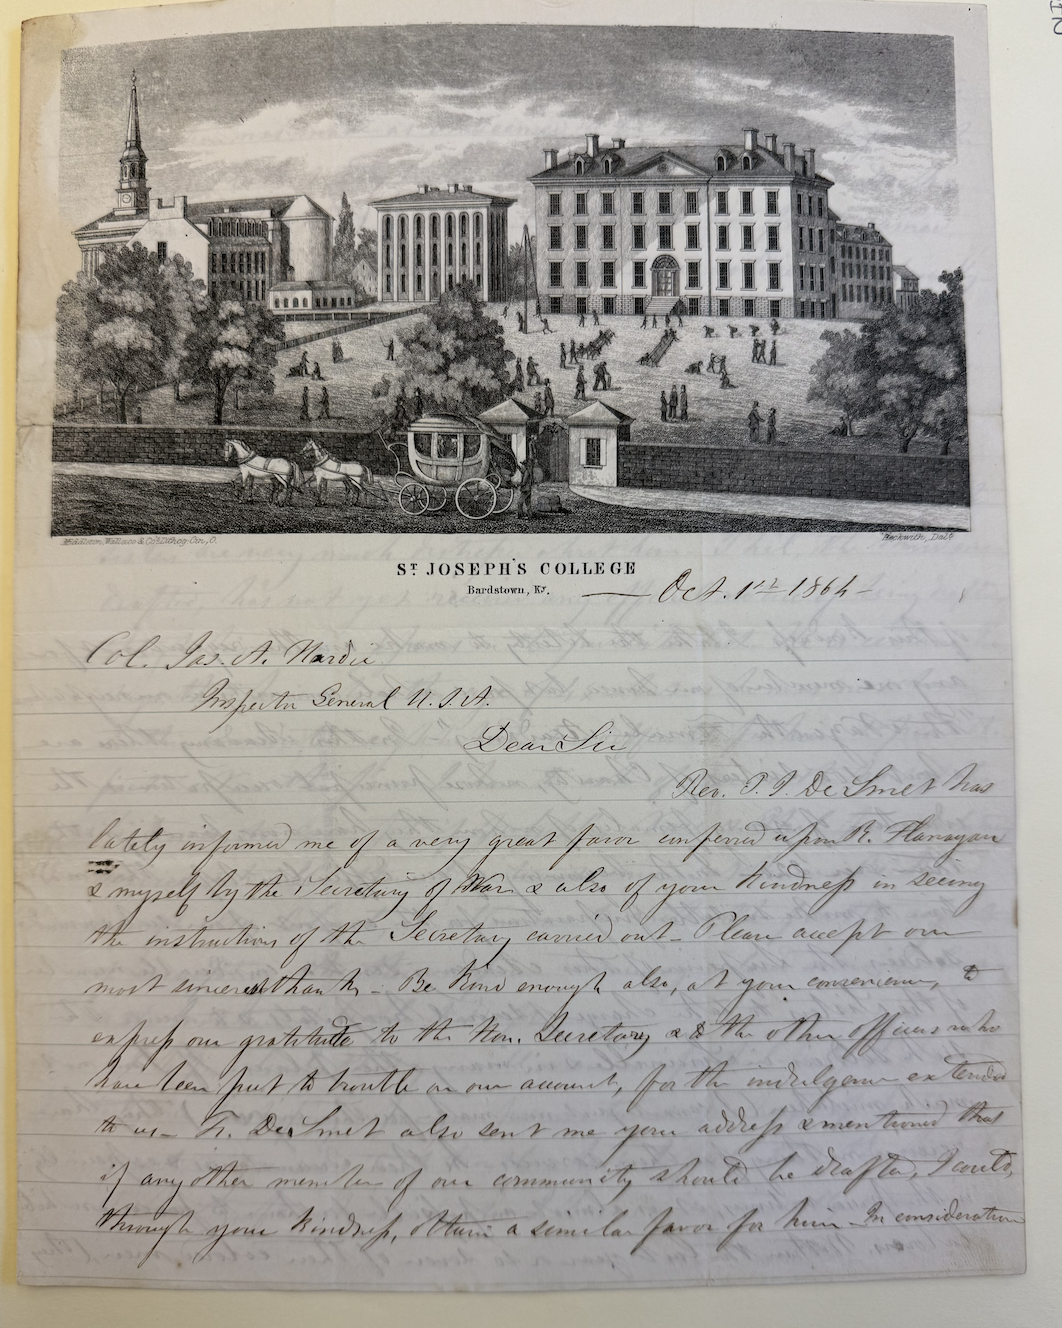 Middleton, Wallace & Co. Lithog. Cin, O.
Beckwith, Delt.
ST. JOSEPH'S COLLEGE
Bardstown, Ky.
Oct. 1st 1864
Col. Jas. A. Hardie
Inspector General U.S.A.
Dear Sir
Rev. P. J. De Smet has
lately informed me of a very great favor conferred upon R. Flanagan
& myself by the Secretary of War & also of your kindness in seeing
the instructions of the Secretary carried out — Please accept our
most sincere thanks — Be kind enough also, at your convenience, to
express our gratitude to the Hon. Secretary & to the other officers who
have been put to trouble on our account, for the indulgence extended
to us — Fr. De Smet also sent me your address & mentioned that
if any other member of our community should be drafted, I could,
through your kindness, obtain a similar favor for him — In consideration